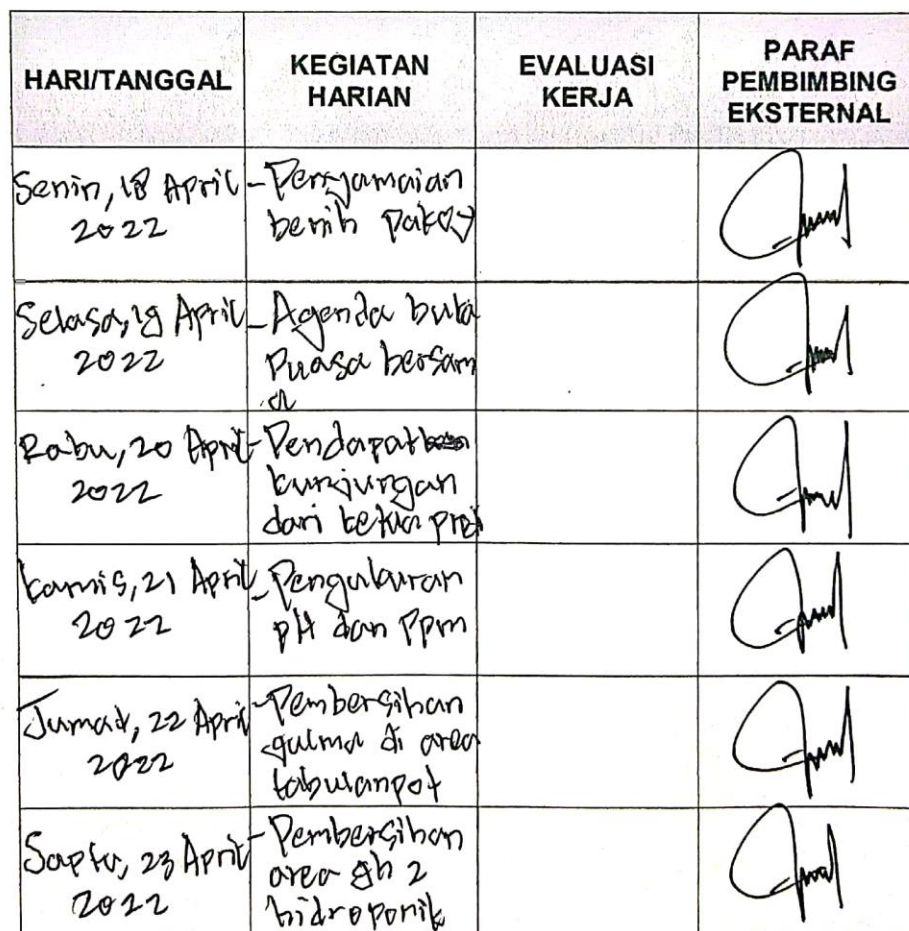 HARI/TANGGAL
KEGIATAN
HARIAN
EVALUASI
KERJA
PARAF
PEMBIMBING
EKSTERNAL
Senin, 18 April
2022
- Penyamaian
benih Pakcoy
Selasa, 19 April
2022
- Agenda buka
Puasa bersam
a
Rabu, 20 April
2022
- Pendapat
kunjungan
dari ketua prodi
Kamis, 21 April
2022
- Pengukuran
pH dan Ppm
Jumat, 22 April
2022
- Pembersihan
gulma di area
tabulampot
Saptu, 23 April
2022
- Pembersihan
area gh 2
hidroponik